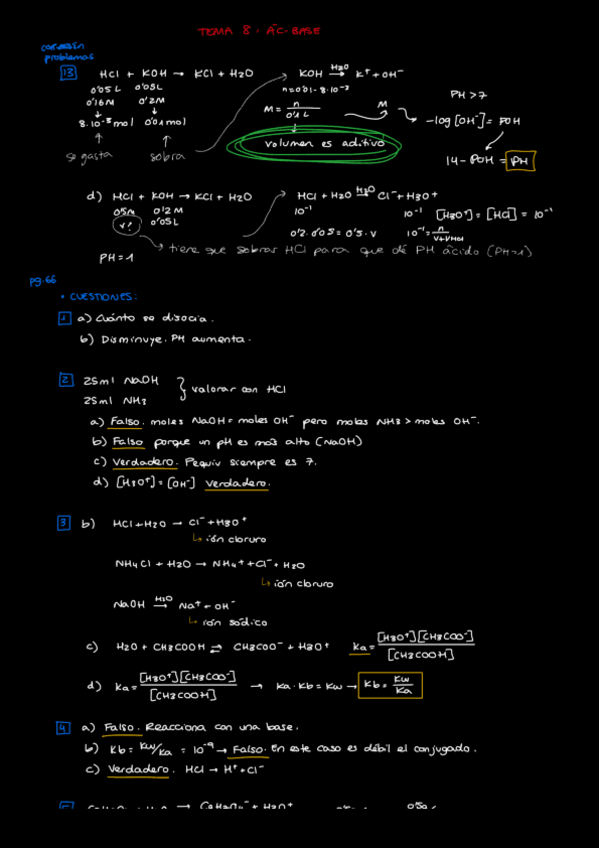 TEMA 8. ÁC-BASE
corrección
problemas
13 HCl + KOH → KCl + H2O KOH →H2O K+ + OH-
0'05L 0'05L n=0'01-8·10-3
0'16M 0'2M M = n/0'1L M PH>7
8·10-3mol 0'01mol -log[OH-]=POH
se gasta sobra volumen es aditivo 14-POH=PH
d) HCl + KOH → KCl + H2O HCl + H2O →H2O Cl- + H3O+
0'5M 0'2M 10-1 10-1 [H3O+]=[HCl]=10-1
V? 0'05L 0'2·0'05=0'5·V 10-1=
tiene que sobrar HCl para que dé PH ácido (PH=1)
PH=1
pg.66
• CUESTIONES:
1 a) Cuánto se disocia.
b) Disminuye. PH aumenta.
2 25ml NaOH
25ml NH3 } valorar con HCl
a) Falso. moles NaOH = moles OH- pero moles NH3 > moles OH-.
b) Falso porque un pH es más alto (NaOH)
c) Verdadero. Pequiv siempre es 7.
d) [H3O+]=[OH-] Verdadero.
3 b) HCl+H2O → Cl- + H3O+
↳ ión cloruro
NH4Cl + H2O → NH4+ + Cl- + H2O
↳ ión cloruro
NaOH →H2O Na+ + OH-
↳ ión sódico
c) H2O + CH3COOH ⇌ CH3COO- + H3O+ Ka=[H3O+][CH3COO-]/[CH3COOH]
d) Ka=[H3O+][CH3COO-]/[CH3COOH] → Ka·Kb=Kw → Kb=Kw/Ka
4 a) Falso. Reacciona con una base.
b) Kb=Kw/Ka = 10-9 → Falso. En este caso es débil el conjugado.
c) Verdadero. HCl → H+ + Cl-